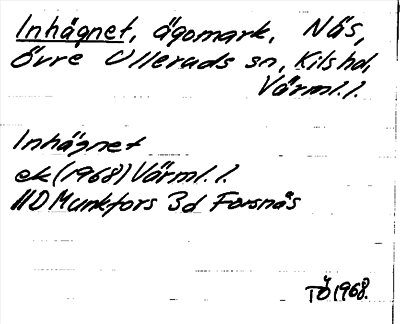 Inhägnet, ägomark, Näs,
Övre Ulleruds sn, Kils hd,
Värml. l.
Inhägnet
ek (1968) Värml. l.
11D Munkfors 3d Forsnäs
TÖ 1968.